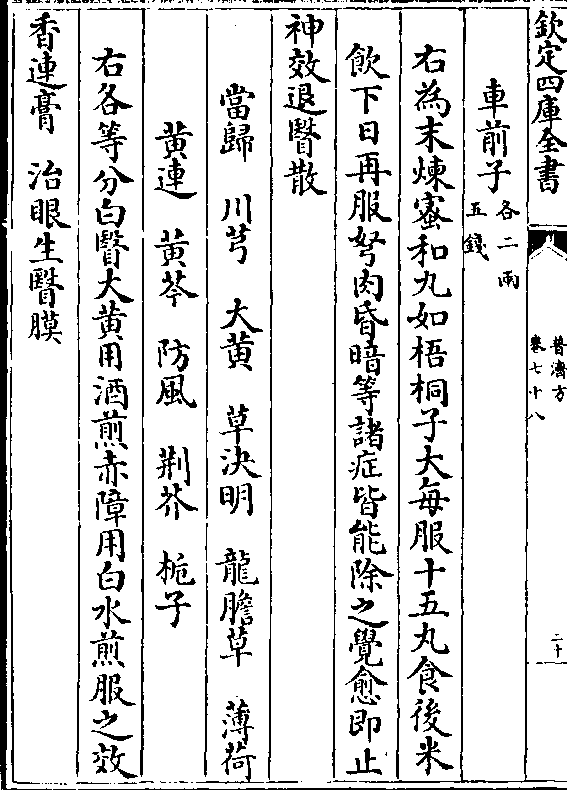 欽定四庫全書
普濟方
卷七十八
二十
車前子各二兩五錢
右為末煉蜜和丸如梧桐子大每服十五丸食後米
飲下日再服努肉昏暗等諸症皆能除之覺愈即止
神效退瞖散
當歸　川芎　大黄　草決明　龍膽草　薄荷
黄連　黄芩　防風　荆芥　梔子
右各等分白瞖大黄用酒煎赤障用白水煎服之效
香連膏　治眼生瞖膜